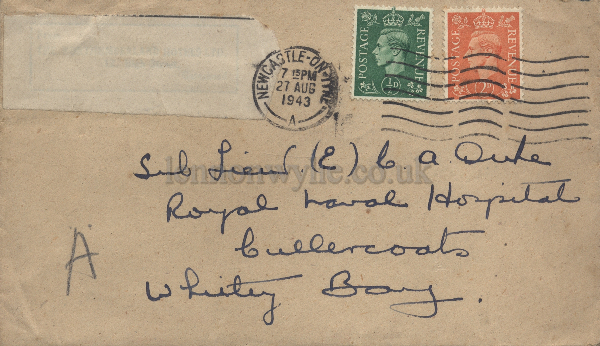 POSTAGE REVENUE ½D
POSTAGE REVENUE 2D
NEWCASTLE-ON-TYNE
7 15PM
27 AUG
1943
A
Sub Lieut (E) C A Duke
londonwyfie.co.uk
Royal Naval Hospital
Cullercoats
A
Whitley Bay.